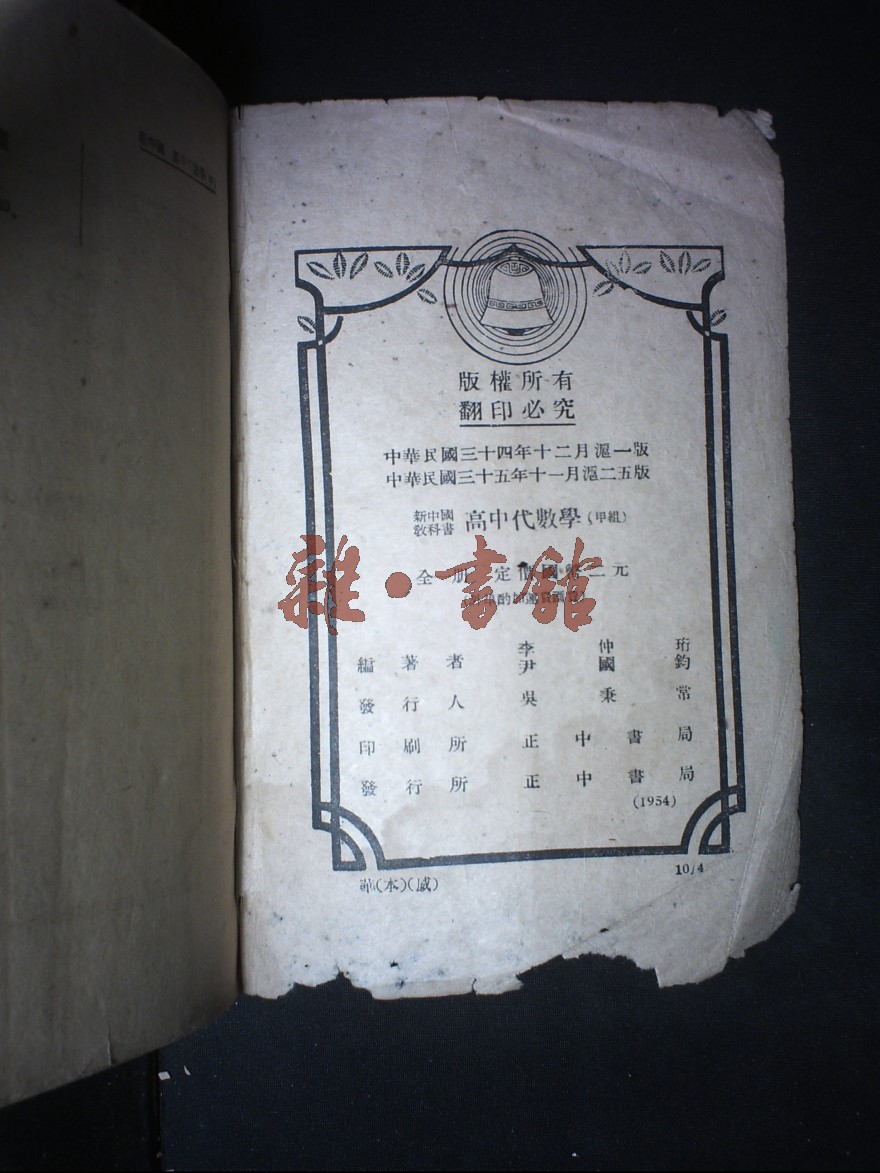 版權所有
翻印必究
中華民國三十四年十二月滬一版
中華民國三十五年十一月滬二五版
新中國教科書 高中代數學 (甲組)
全 冊 定價國幣二元
雜·書館
編著者 李仲珩 尹國鈞
發行人 吳秉常
印刷所 正中書局
發行所 正中書局
(1954)
(本)(威)
10/4